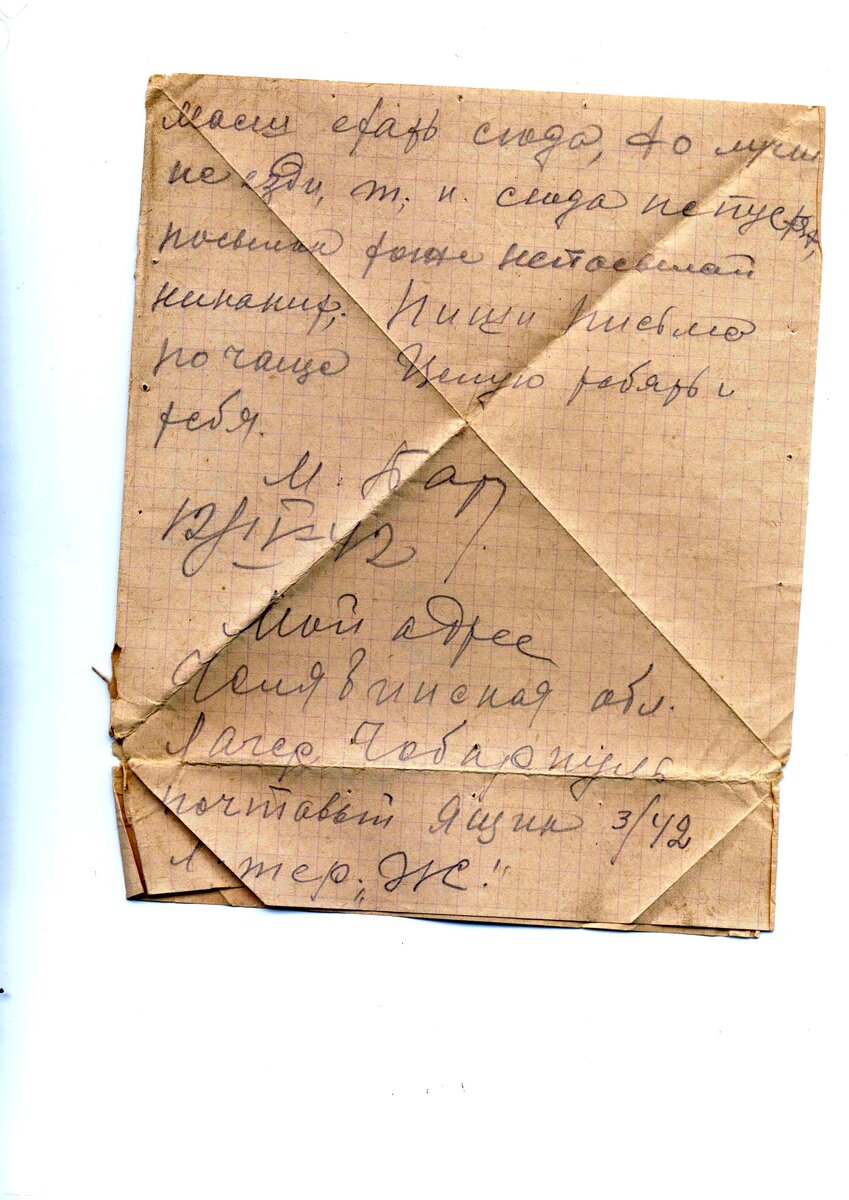 сюда, то лучш
не езди, т. к. сюда не пустят,
посылок тоже непосылай
никаких; Пиши письма
по чаще Целую ребять и
тебя.
М. Бар
12/IV-42
Мой адрес
Челябинская обл.
Лагер Чебаркуль
почтовый ящик 3/42
литер „Ж."